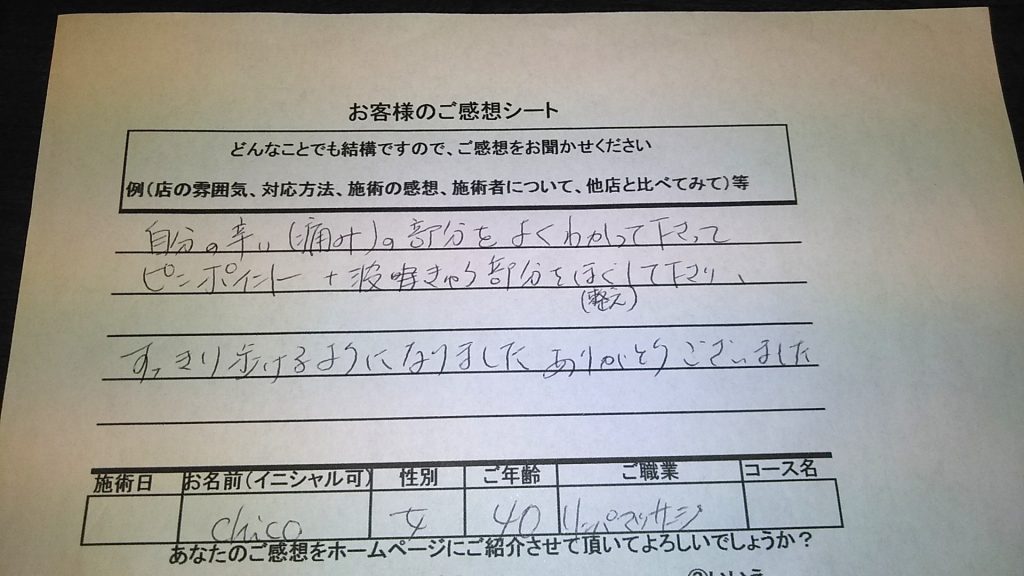 お客様のご感想シート
どんなことでも結構ですので、ご感想をお聞かせください
例(店の雰囲気、対応方法、施術の感想、施術者について、他店と比べてみて)等
自分の辛い(痛み)の部分をよくわかって下さって
ピンポイント+ 部分をほぐして下さり、
(整え)
すっきり歩けるようになりました ありがとうございました
施術日 お名前(イニシャル可) 性別 ご年齢 ご職業 コース名
chico 女 40 リンパマッサージ
あなたのご感想をホームページにご紹介させて頂いてよろしいでしょうか?
②いいえ